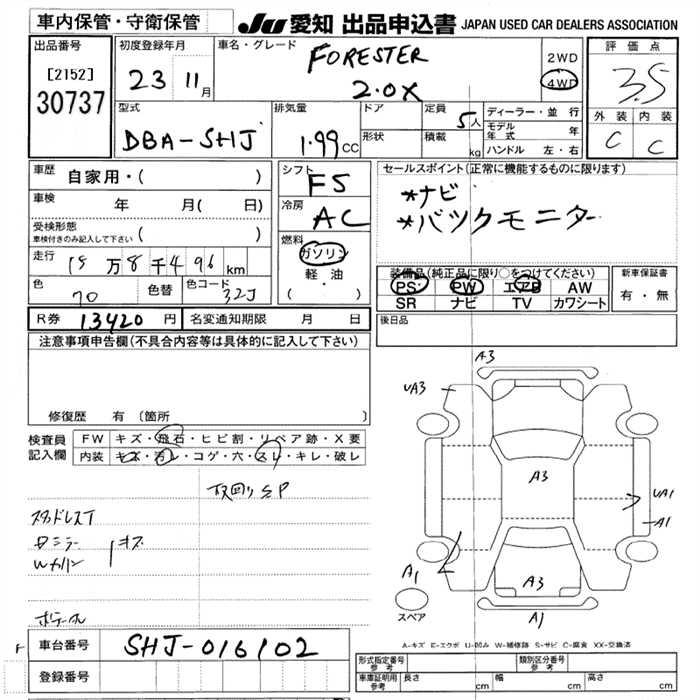 車内保管・守衛保管 JU 愛知 出品申込書 JAPAN USED CAR DEALERS ASSOCIATION
出品番号
[2152]
30737
初度登録年月
23 11月
車名・グレード
FORESTER
2.0X
2WD
4WD
評価点
3.5
外装 内装
C C
型式
DBA-SHJ
排気量
1.99 CC
ドア
形状
定員
5人
積載
kg
ディーラー・並行
モデル年式 年
ハンドル 左・右
車歴 自家用・( )
車検 年 月( 日)
受検形態
車検付きのみ記入して下さい ( )
走行 15万8千496 km
色 70 色替 色コード 32J
シフト F5
冷房 AC
燃料
ガソリン
軽・油
( ・ )
セールスポイント(正常に機能するものに限ります)
*ナビ
*バックモニター
装備品(純正品に限り○をつけてください)
PS PW エアB AW
SR ナビ TV カワシート
新車保証書
有・無
R券 13420円 名変通知期限 月 日
後日品
注意事項申告欄(不具合内容等は具体的に記入して下さい)
修復歴 有 〔箇所 〕
検査員記入欄
FW キズ・飛石・ヒビ割・リペア跡・X要
内装 キズ・汚レ・コゲ・穴・スレ・キレ・破レ
スタッドレスT
キズ
A3
UA3
A3
UA1
A1
A1
A3
A1
スペア
A-キズ E-エクボ U-凹み W-補修跡 S-サビ C-腐食 XX-交換済
F 車台番号 SHJ-016102
登録番号
形式指定番号 参考 類別区分番号 参考
車庫証明用 参考 長さ cm 幅 cm 高さ cm